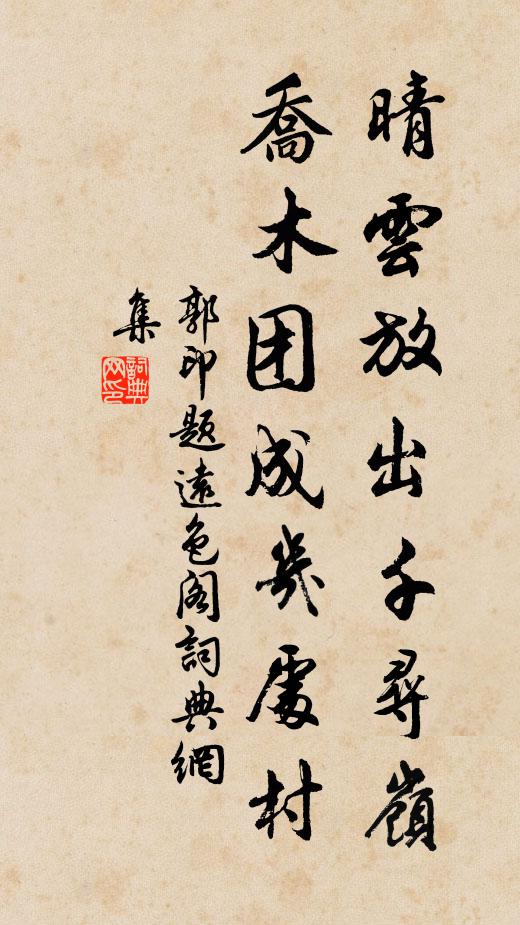 晴雲放出千尋嶺
喬木团成幾處村
郭印題遠色阁詞典網
集
詞典网印